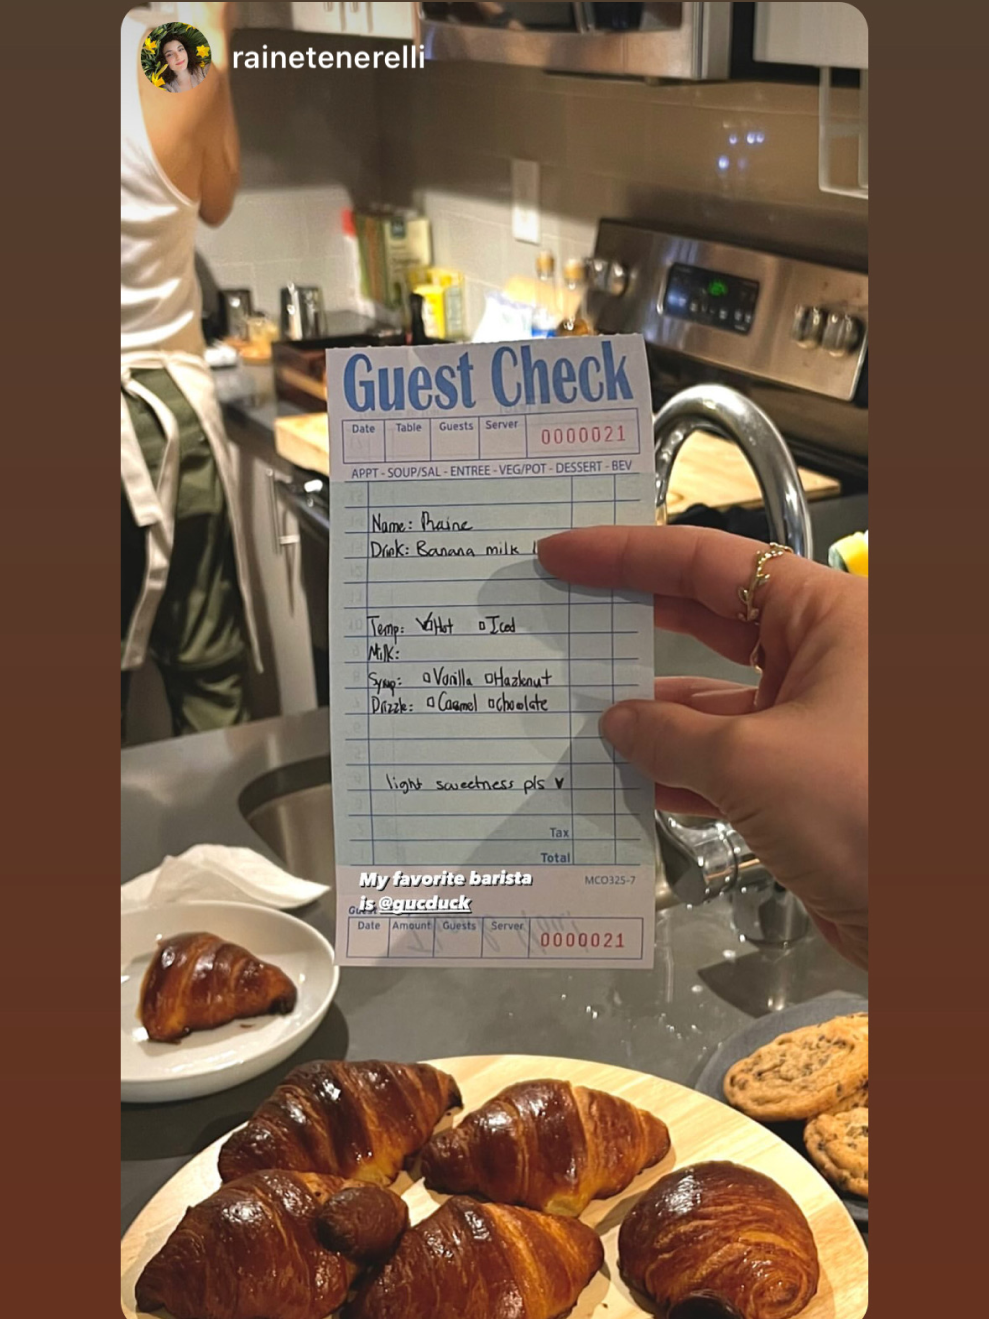 rainetenerelli
Guest Check
Date Table Guests Server 0000021
APPT - SOUP/SAL - ENTREE - VEG/POT - DESSERT - BEV
Name: Raine
Drink: Banana milk
Temp: Hot Iced
Milk:
Syrup: Vanilla Hazelnut
Drizzle: Caramel chocolate
light sweetness pls
Tax
Total
My favorite barista
MCO325-7
is @gucduck
Date Amount Guests Server 0000021